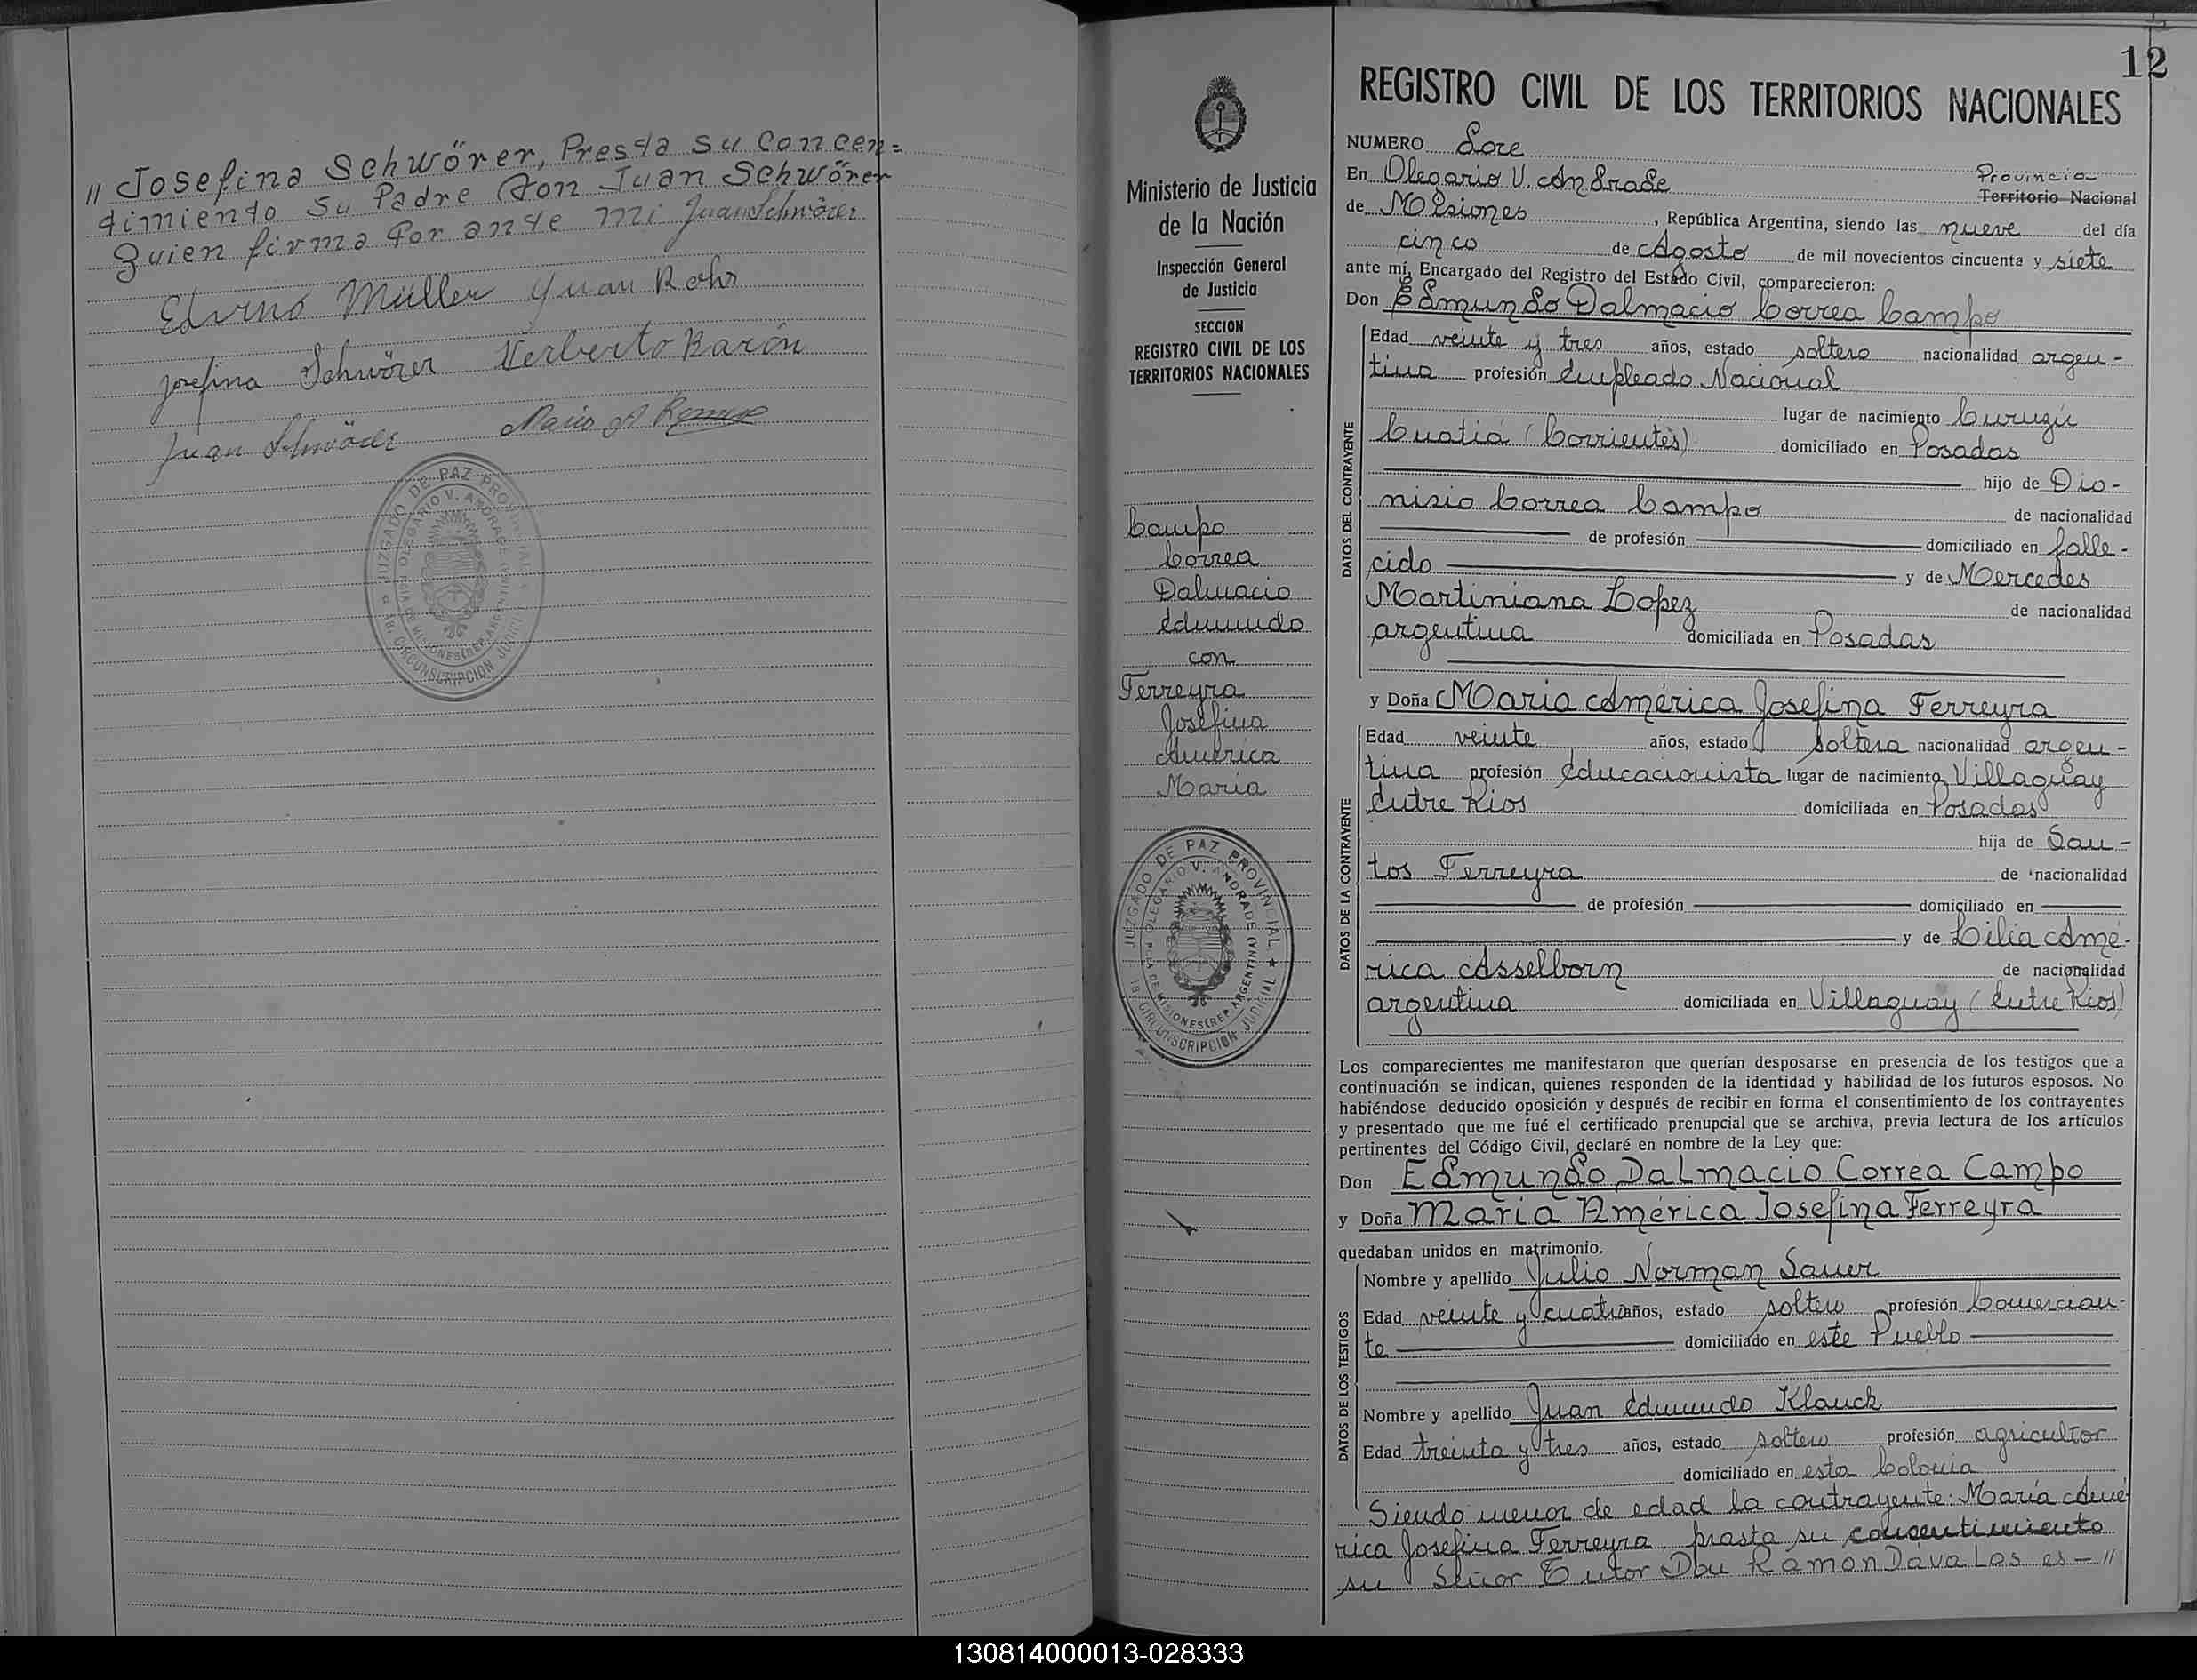 " Josefina Schwörer, Presta su Concen=
timiento su Padre Don Juan Schwörer
Quien firma Por ante mi Juan Schwörer
Edvino Müller Juan Rohr
Josefina Schwörer Herberto Barón
Juan Schwörer Mario A
JUZGADO DE PAZ PROVINCIAL
OLEGARIO V. ANDRADE
PCIA DE MISIONES (REP. ARGENTINA)
CIRCUNSCRIPCION JUDICIAL
Ministerio de Justicia
de la Nación
Inspección General
de Justicia
SECCION
REGISTRO CIVIL DE LOS
TERRITORIOS NACIONALES
Campo
Correa
Dalmacio
Edmundo
con
Ferreyra
Josefina
América
María
JUZGADO DE PAZ PROVINCIAL
OLEGARIO V. ANDRADE
PCIA DE MISIONES (REP. ARGENTINA)
CIRCUNSCRIPCION JUDICIAL
12
REGISTRO CIVIL DE LOS TERRITORIOS NACIONALES
NUMERO Doce
En Olegario V. Andrade Provincia Territorio Nacional
de Misiones, República Argentina, siendo las nueve del día
cinco de Agosto de mil novecientos cincuenta y siete
ante mí, Encargado del Registro del Estado Civil, comparecieron:
Don Edmundo Dalmacio Correa Campo
DATOS DEL CONTRAYENTE
Edad veinte y tres años, estado soltero nacionalidad argen-
tina profesión Empleado Nacional
lugar de nacimiento Curuzú
Cuatiá (Corrientes) domiciliado en Posadas
hijo de Dio-
nisio Correa Campo de nacionalidad
de profesión domiciliado en falle-
cido y de Mercedes
Martiniana Lopez de nacionalidad
argentina domiciliada en Posadas
y Doña Maria América Josefina Ferreyra
DATOS DE LA CONTRAYENTE
Edad veinte años, estado soltera nacionalidad argen-
tina profesión Educacionista lugar de nacimiento Villaguay
Entre Rios domiciliada en Posadas
hija de San-
tos Ferreyra de nacionalidad
de profesión domiciliado en
y de Lilia Amé-
rica Asselborn de nacionalidad
argentina domiciliada en Villaguay (Entre Rios)
Los comparecientes me manifestaron que querían desposarse en presencia de los testigos que a
continuación se indican, quienes responden de la identidad y habilidad de los futuros esposos. No
habiéndose deducido oposición y después de recibir en forma el consentimiento de los contrayentes
y presentado que me fué el certificado prenupcial que se archiva, previa lectura de los artículos
pertinentes del Código Civil, declaré en nombre de la Ley que:
Don Edmundo Dalmacio Correa Campo
y Doña María América Josefina Ferreyra
quedaban unidos en matrimonio.
DATOS DE LOS TESTIGOS
Nombre y apellido Julio Norman Sauer
Edad veinte y cuatro años, estado soltero profesión Comercian-
te domiciliado en este Pueblo
Nombre y apellido Juan Edmundo Klauck
Edad treinta y tres años, estado soltero profesión agricultor
domiciliado en esta Colonia
Siendo menor de edad la contrayente: María Amé
rica Josefina Ferreyra, prasta su consentimiento
su Señor Tutor Don Ramon Davalos es - "
130814000013-028333